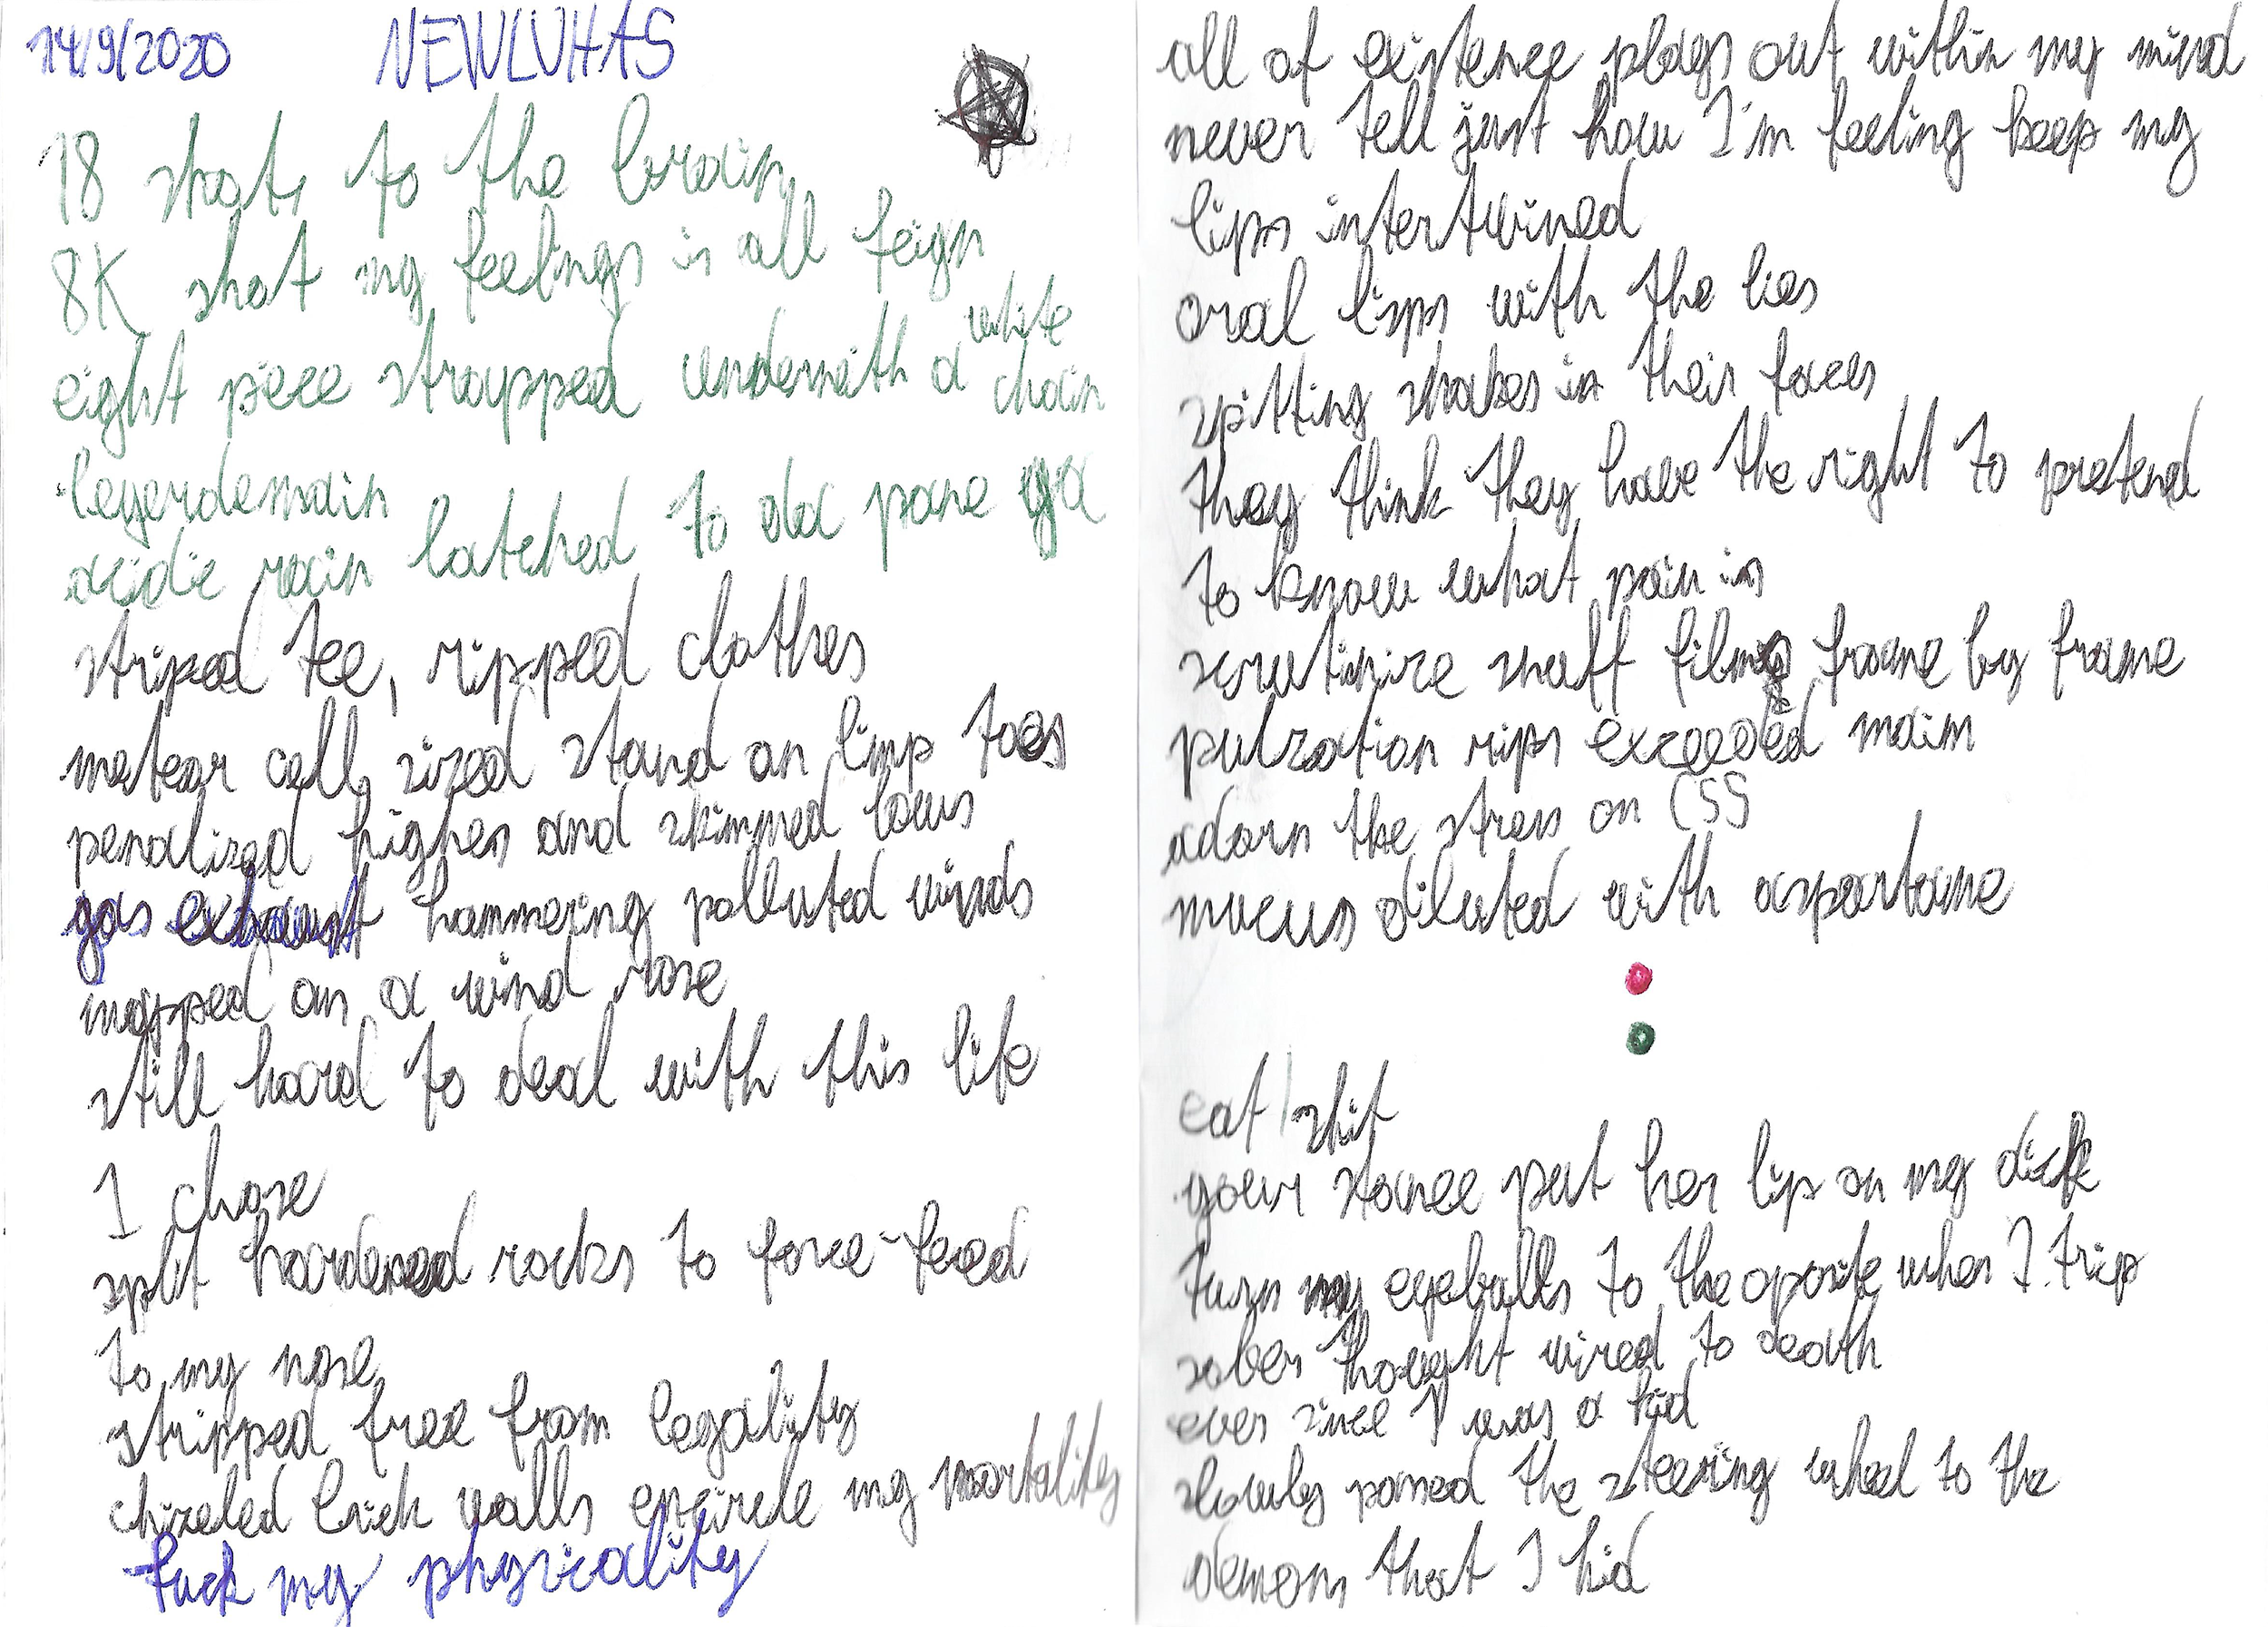 14/9/2020 NEWLUHAS
18 shots to the brain
8K shot my feelings is all feign
eight piece strapped underneith a white chain
legerdemain
acidic rain latched to da pane ya
striped tee, ripped clothes
meteor cell sized stand on limp toes
penalized highes and skimmed lows
gas exhaust hammering polluted winds
mapped on a wind rose
still hard to deal with this life
I chose
split hardened rocks to force-feed
to my nose
stripped free from legality
chizeled brick walls encircle my mortality
fuck my physicality
all of existence plays out within my mind
never tell just how I'm feeling keep my
lips intertwined
oral lisps with the lies
spitting shakes in their faces
they think they have the right to pretend
to know what pain is
scrutinize snuff films frame by frame
pulzation rips exceeded maim
adorn the stress on CSS
mucus diluted with aspartame
eat shit
your stance put her lip on my dick
turn my eyeballs to the oposite when I trip
sober thought wired to death
ever since I was a kid
slowly passed the steering wheel to the
demons that I hid